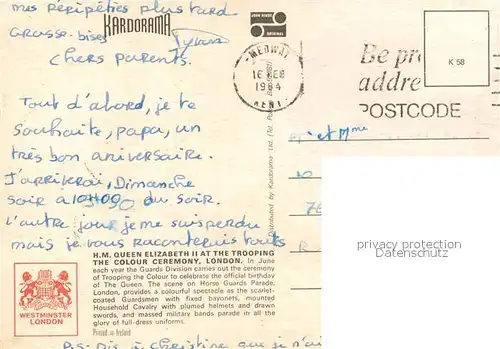 mes péripéties plus tard
KARDORAMA
Grosse bises
Chers parents.
Tout d'abord, je te
souhaite, papa, un
très bon aniversaire.
J'arriverai, Dimanche
soir a du soir.
L'autre jour je me suis perdu
mais je vous raconterais touts
H.M. QUEEN ELIZABETH II AT THE TROOPING
THE COLOUR CEREMONY, LONDON. In June
each year the Guards Division carries out the ceremony
of Trooping the Colour to celebrate the official birthday
of The Queen. The scene on Horse Guards Parade,
London, provides a colourful spectacle as the scarlet-
coated Guardsmen with fixed bayonets, mounted
Household Cavalry with plumed helmets and drawn
swords, and massed military bands parade in all the
glory of full-dress uniforms.
Printed in Ireland
WESTMINSTER
LONDON
P.S. Dis à Christine que je n'ai
JOHN HINDE
ORIGINAL
MEDWAY
16 FEB
1984
KENT
Be pr
addre
POSTCODE
K 58
Distributed by Kardorama Ltd.
et Mme
privacy protection
Datenschutz